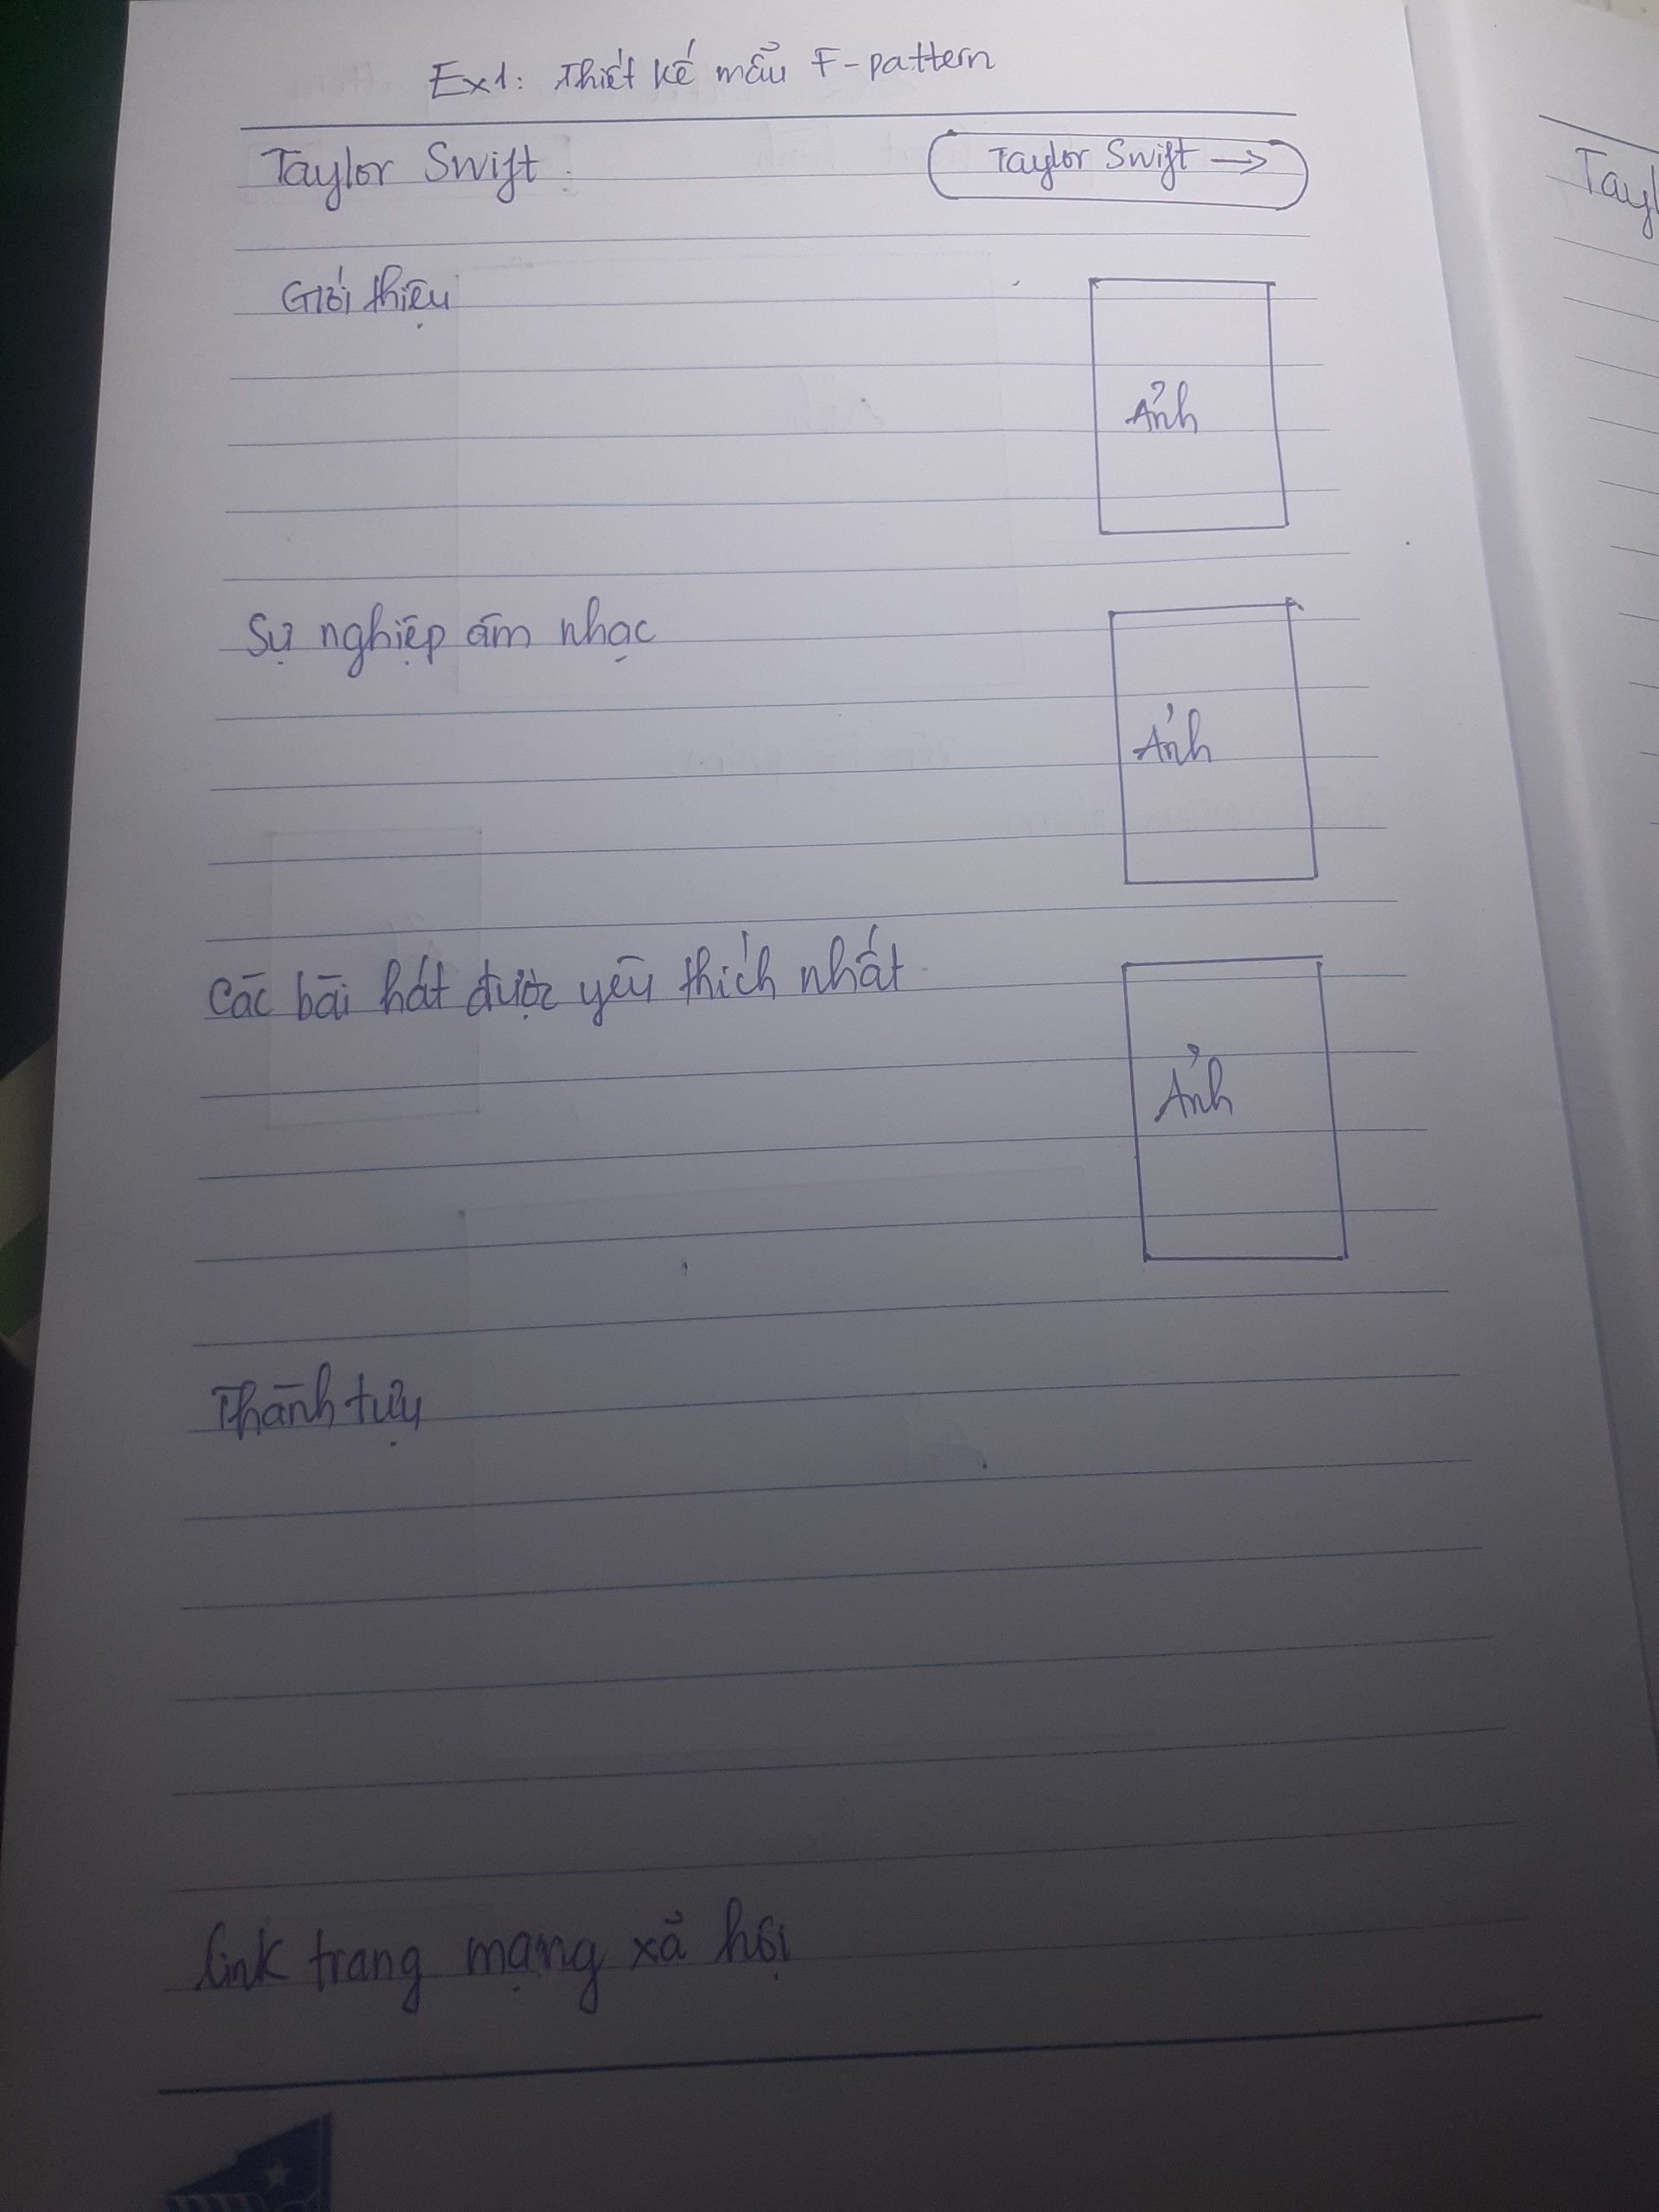 Ex1: Thiết kế mẫu F-pattern
Taylor Swift
Taylor Swift →
Giới thiệu
Ảnh
Sự nghiệp âm nhạc
Ảnh
Các bài hát được yêu thích nhất
Ảnh
Thành tựu
Link trang mạng xã hội
Tayl